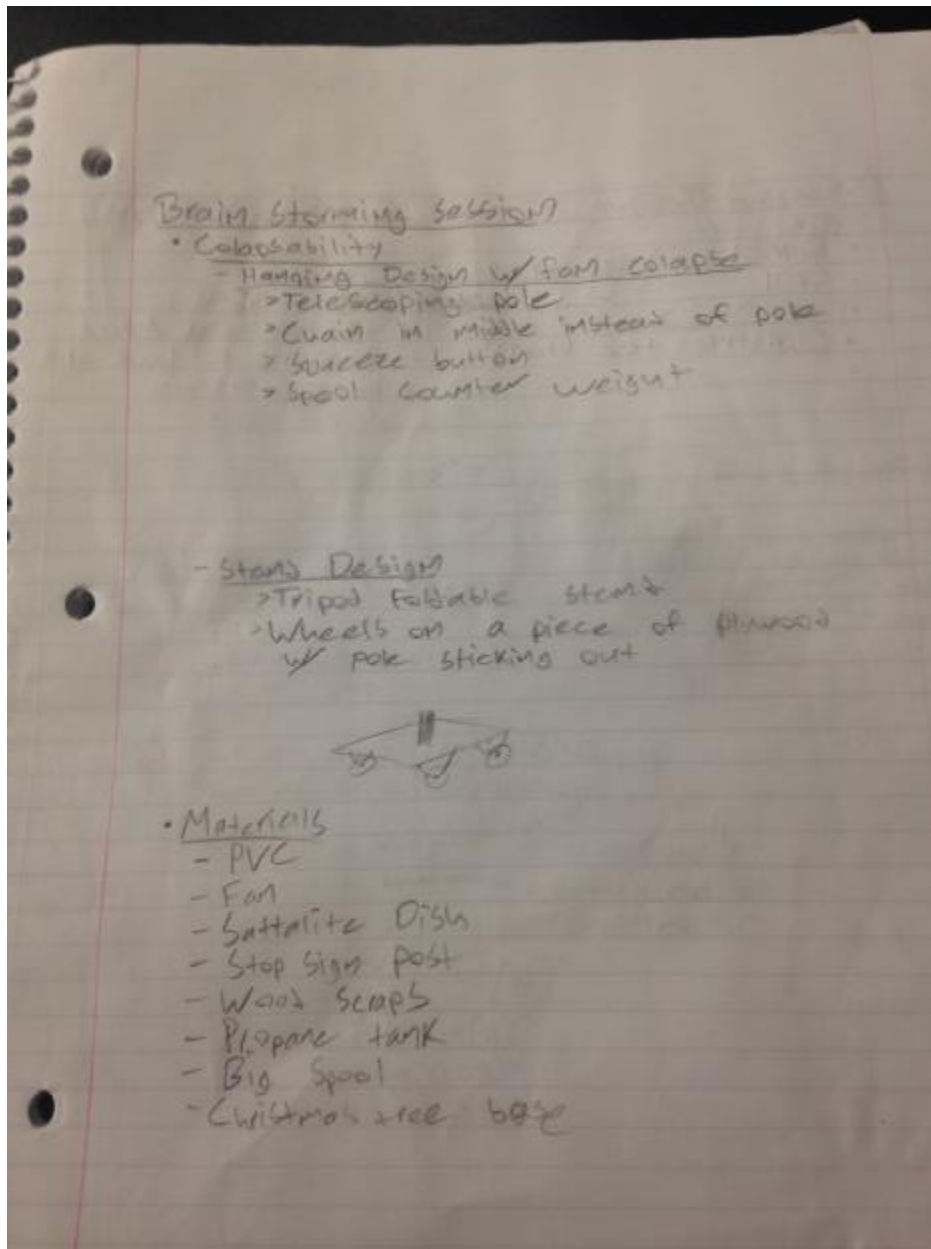 Brain Storming Session
• Colapsability
- Hanging Design w/ fan colapse
> Telescoping pole
> Chain in middle instead of pole
> Squeeze button
> Spool counter weight
- Stand Design
> Tripod foldable stand
> Wheels on a piece of plywood
w/ pole sticking out
• Materials
- PVC
- Fan
- Sattalite Dish
- Stop sign post
- Wood scraps
- Propane tank
- Big Spool
- Christmas tree base